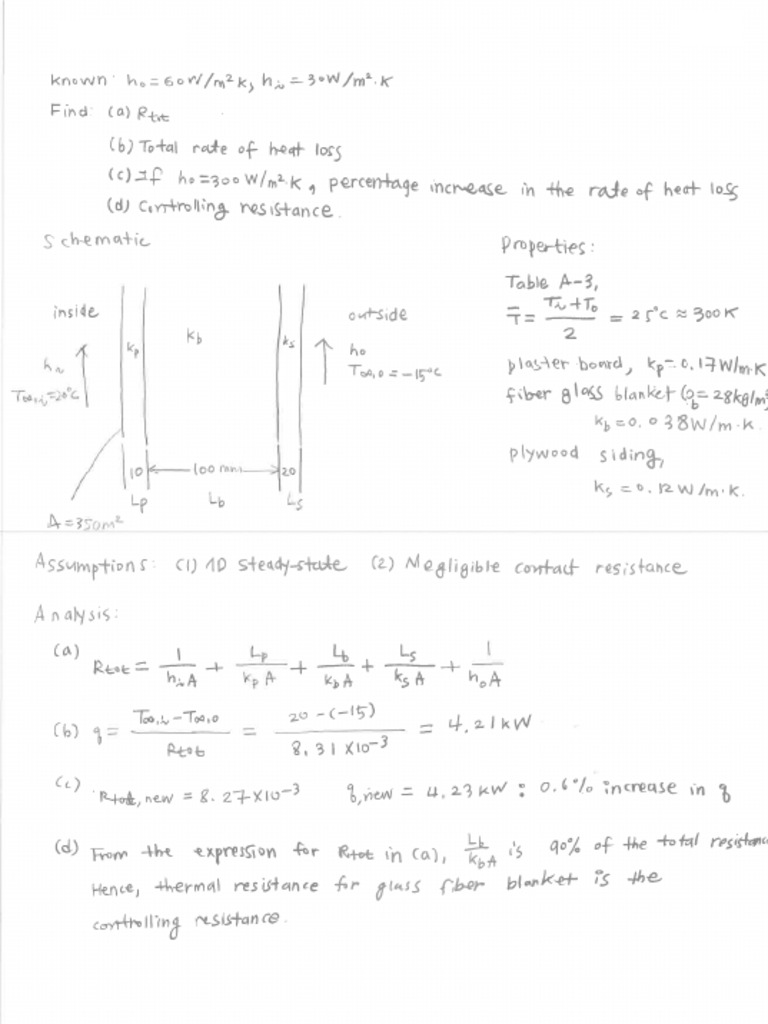 known: ho = 60W/m²K, hi = 30W/m².K
Find: (a) Rtot
(b) Total rate of heat loss
(c) If ho=300 W/m².K, percentage increase in the rate of heat loss
(d) Controlling resistance.
Schematic
Properties:
Table A-3,
T̄ = (Ti+To)/2 = 25°C ≈ 300K
plaster board, kp=0.17W/m.K
fiber glass blanket (ρb=28kg/m³
kb=0.038W/m.K.
plywood siding,
ks=0.12W/m.K.
inside
hi
T∞,i=20°C
kp
kb
ks
outside
ho
T∞,o=-15°C
10
100 mm
20
Lp
Lb
Ls
A=350m²
Assumptions: (1) 1D steady-state (2) Negligible contact resistance
Analysis:
(a) Rtot = 1/(hiA) + Lp/(kpA) + Lb/(kbA) + Ls/(ksA) + 1/(hoA)
(b) q = (T∞,i-T∞,o)/Rtot = (20-(-15))/(8.31×10⁻³) = 4.21kW
(c) Rtot,new = 8.27×10⁻³ q,new = 4.23kW : 0.6% increase in q
(d) From the expression for Rtot in (a), Lb/(kbA) is 90% of the total resistanc
Hence, thermal resistance for glass fiber blanket is the
controlling resistance.